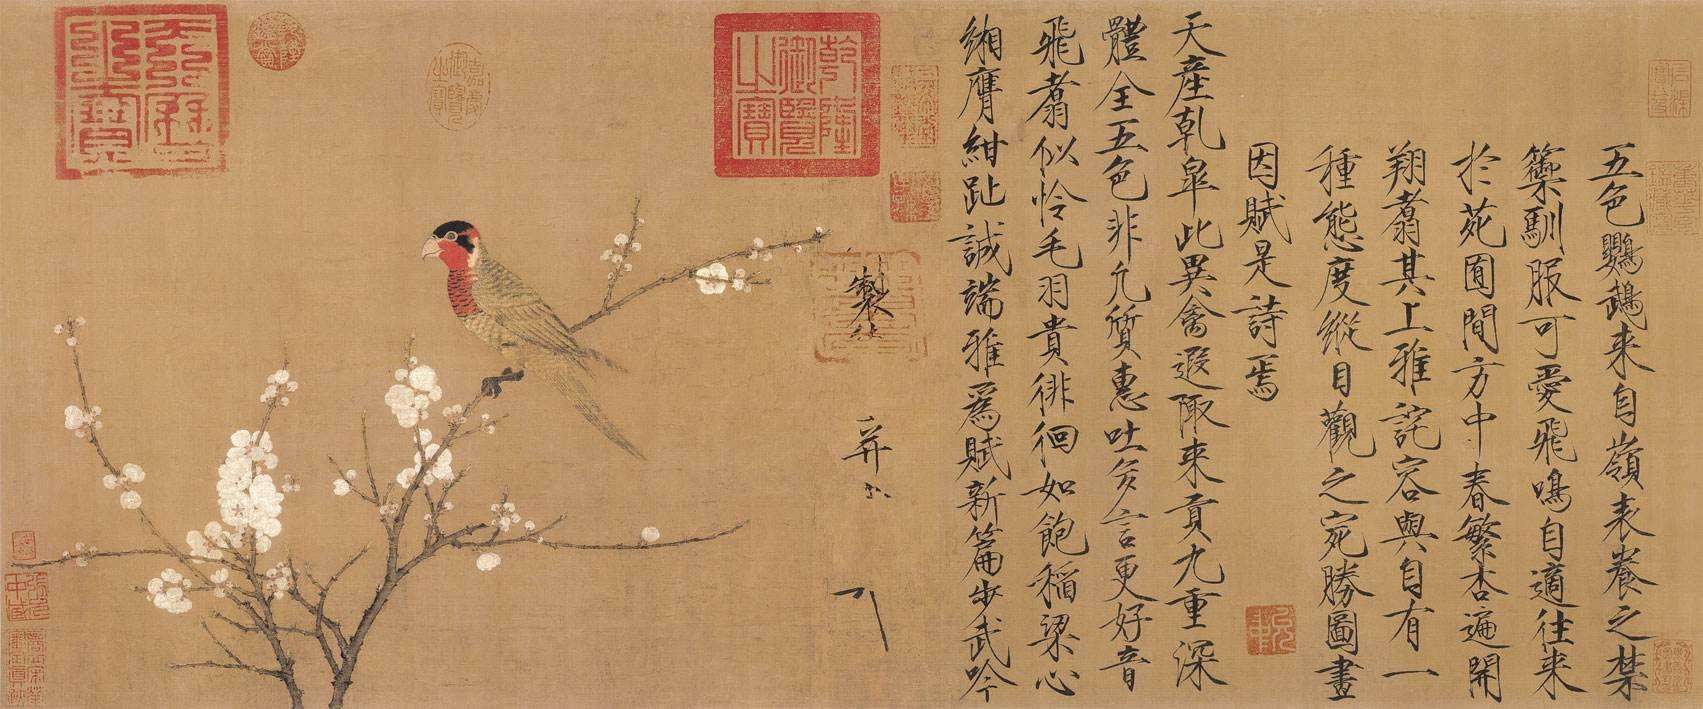 五色鸚鵡来自嶺表養之禁
籞馴服可愛飛鳴自適往来
於苑囿間方中春繁杏遍開
翔翥其上雅詫容與自有一
種態度縱目觀之宛勝圖畫
因賦是詩焉
天產乹皐此異禽遐陬来貢九重深
體全五色非凡質惠吐多言更好音
飛翥似怜毛羽貴徘徊如飽稲粱心
緗膺紺趾誠端雅爲賦新篇步武吟
製
乾隆御覽之寶
嘉慶御覽之寶